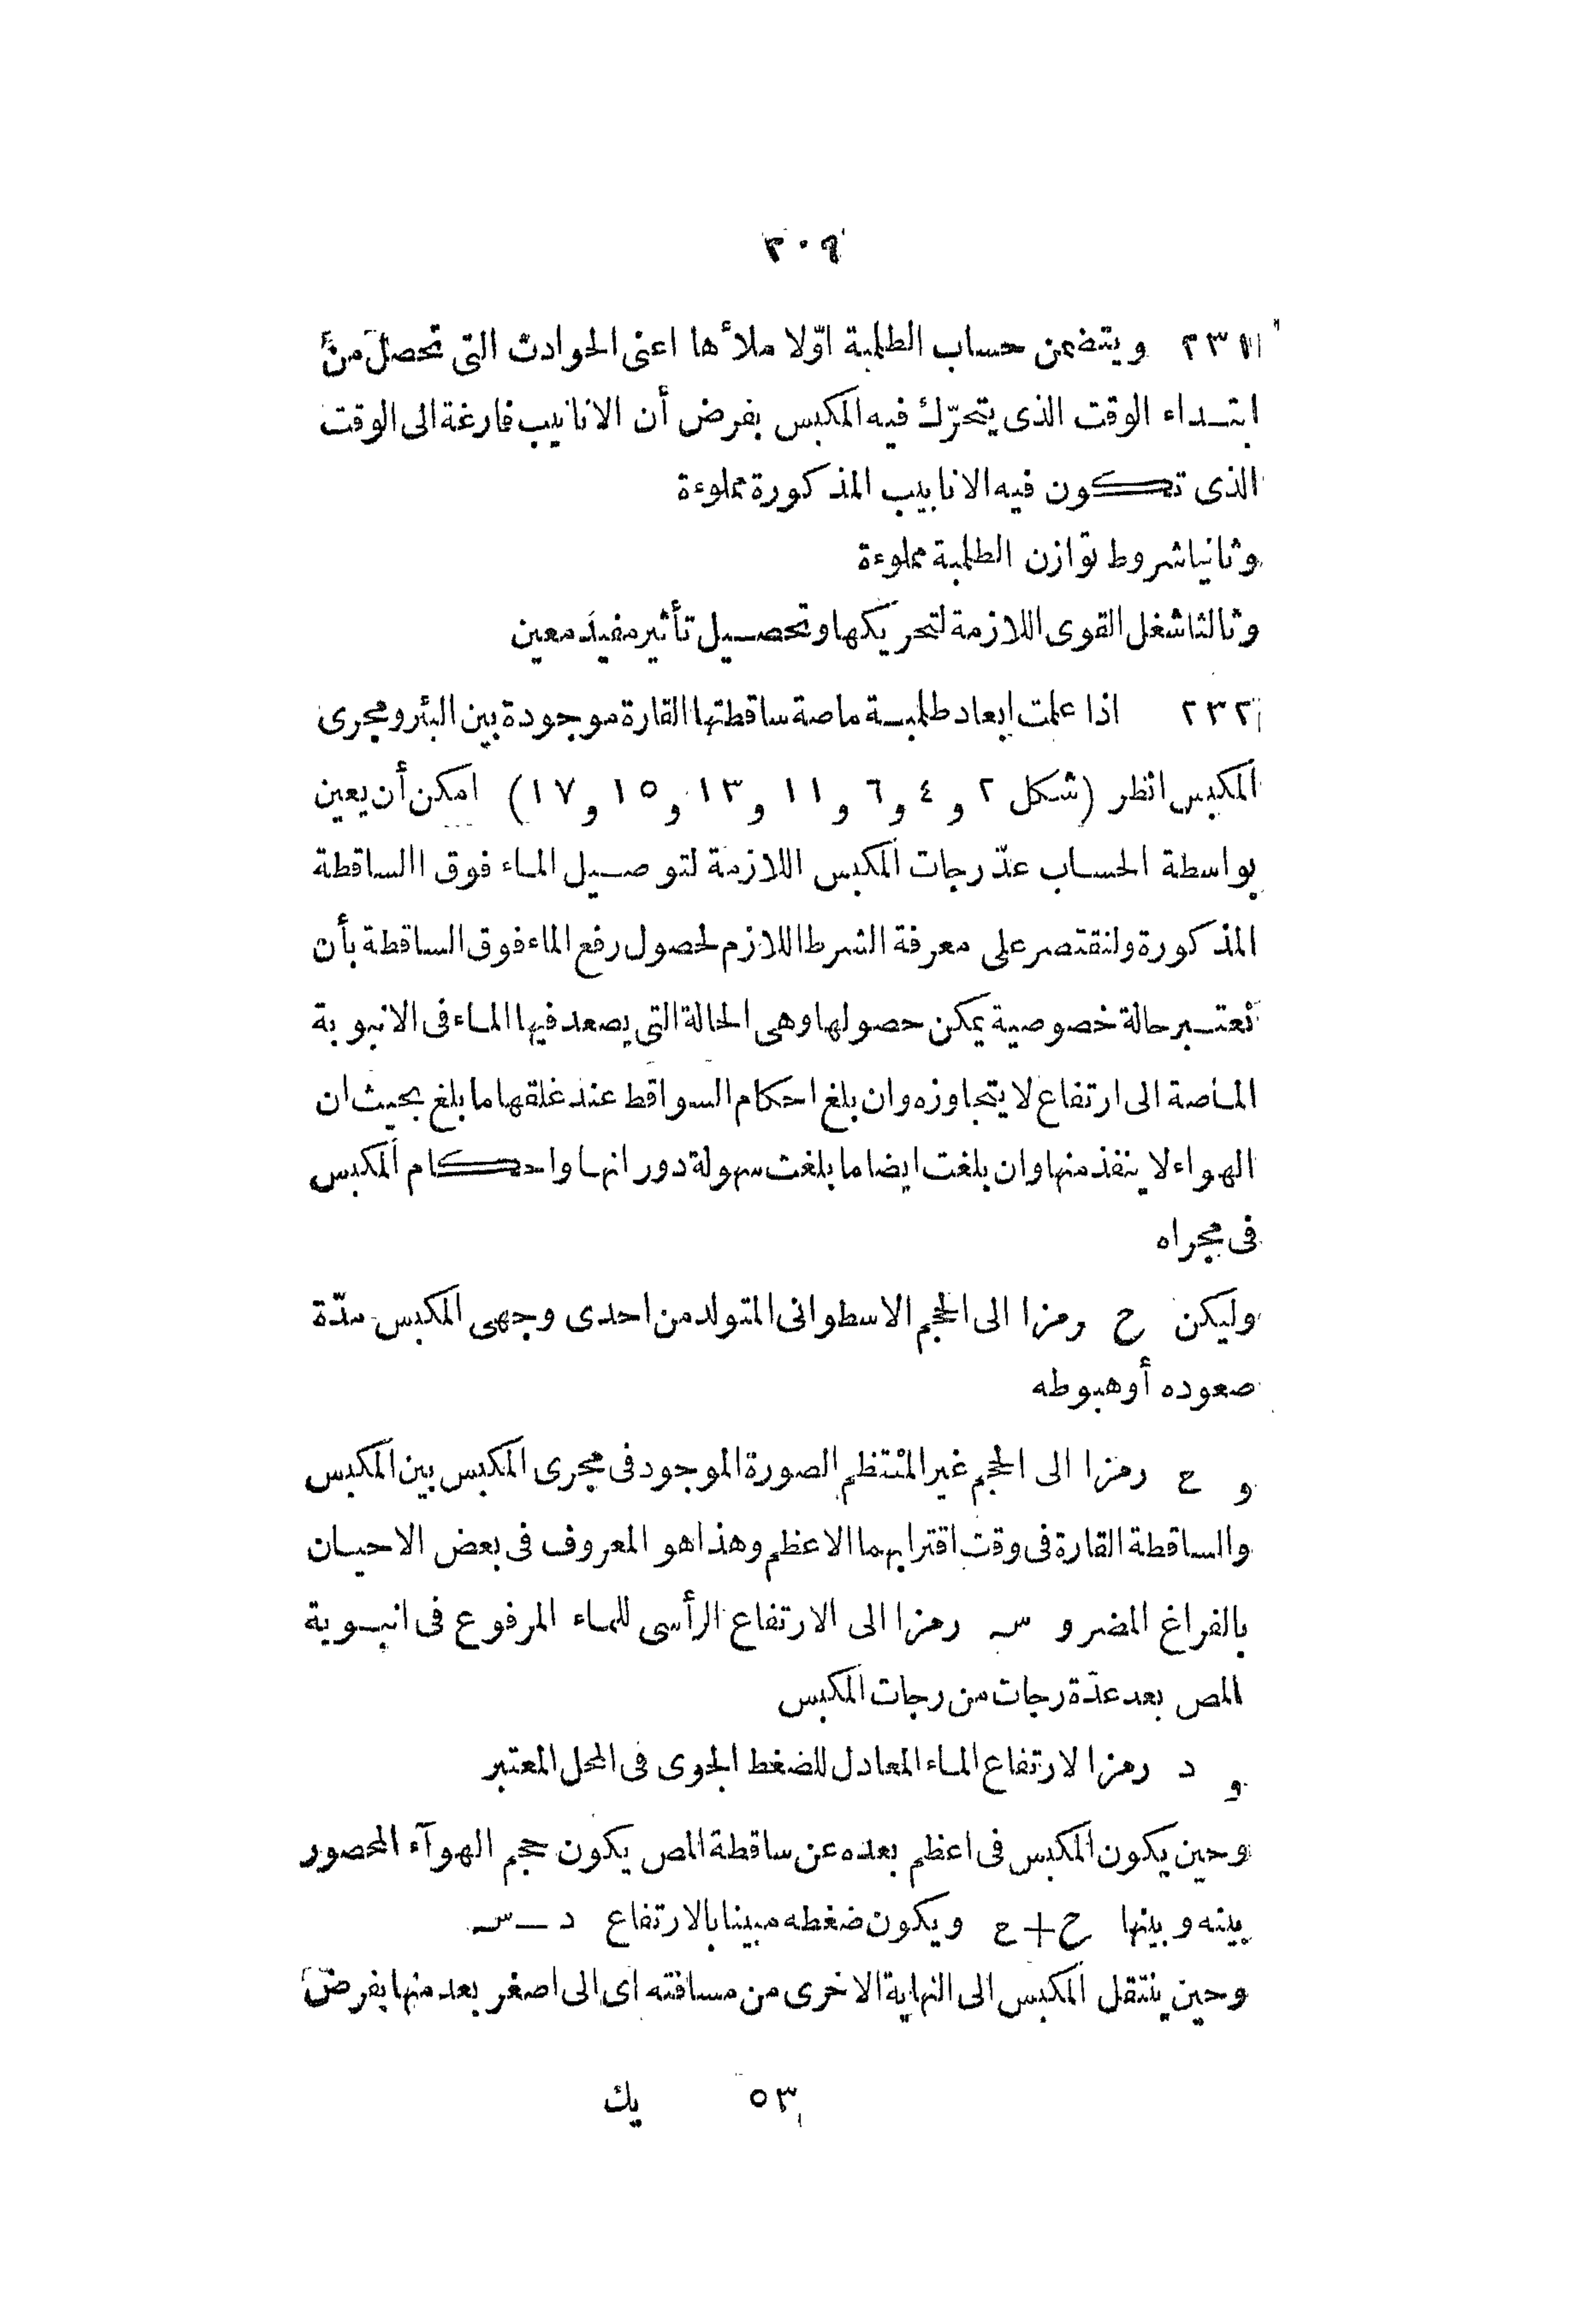 ٣٠٩
٢٣١ ويتضمن حساب الطلمبة اوّلا ملأها اعنى الحوادث التى تحصل من
ابتداء الوقت الذى يتحرّك فيه المكبس بفرض أن الانابيب فارغة الى الوقت
الذى تكون فيه الانابيب المذكورة مملوءة
وثانيا شروط توازن الطلمبة مملوءة
وثالثا شغل القوى اللازمة لتحريكها وتحصيل تأثير مفيد معين
٢٣٢ اذا علمت ابعاد طلمبة ماصة ساقطتها القارة موجودة بين البئر ومجرى
المكبس انظر (شكل ٢ و ٤ و ٦ و ١١ و ١٣ و ١٥ و ١٧) امكن أن يعين
بواسطة الحساب عدّ رجات المكبس اللازمة لتوصيل الماء فوق االساقطة
المذكورة ولنقتصر على معرفة الشرط اللازم لحصول رفع الماء فوق الساقطة بأن
نعتبر حالة خصوصية يمكن حصولها وهى الحالة التى يصعد فيها الماء فى الانبوبة
الماصة الى ارتفاع لا يتجاوزه وان بلغ احكام السواقط عند غلقها ما بلغ بحيث ان
الهواء لا ينفذ منها وان بلغت ايضا ما بلغت سهولة دورانها واحكام المكبس
فى مجراه
وليكن ح رمزا الى الحجم الاسطوانى المتولد من احدى وجهى المكبس مدّة
صعوده أو هبوطه
و ع رمزا الى الحجم غير المنتظم الصورة الموجود فى مجرى المكبس بين المكبس
والساقطة القارة فى وقت اقترابهما الاعظم وهذا هو المعروف فى بعض الاحيان
بالفراغ المضر و س رمزا الى الارتفاع الرأسى للماء المرفوع فى انبوبة
المص بعد عدّة رجات من رجات المكبس
و د رمزا لارتفاع الماء المعادل للضغط الجوى فى المحل المعتبر
وحين يكون المكبس فى اعظم بعده عن ساقطة المص يكون حجم الهوآء المحصور
بينه وبينها ح+ع ويكون ضغطه مبينا بالارتفاع د — س
وحين ينتقل المكبس الى النهاية الاخرى من مسافته اى الى اصغر بعد منها بفرض
٥٣ يك